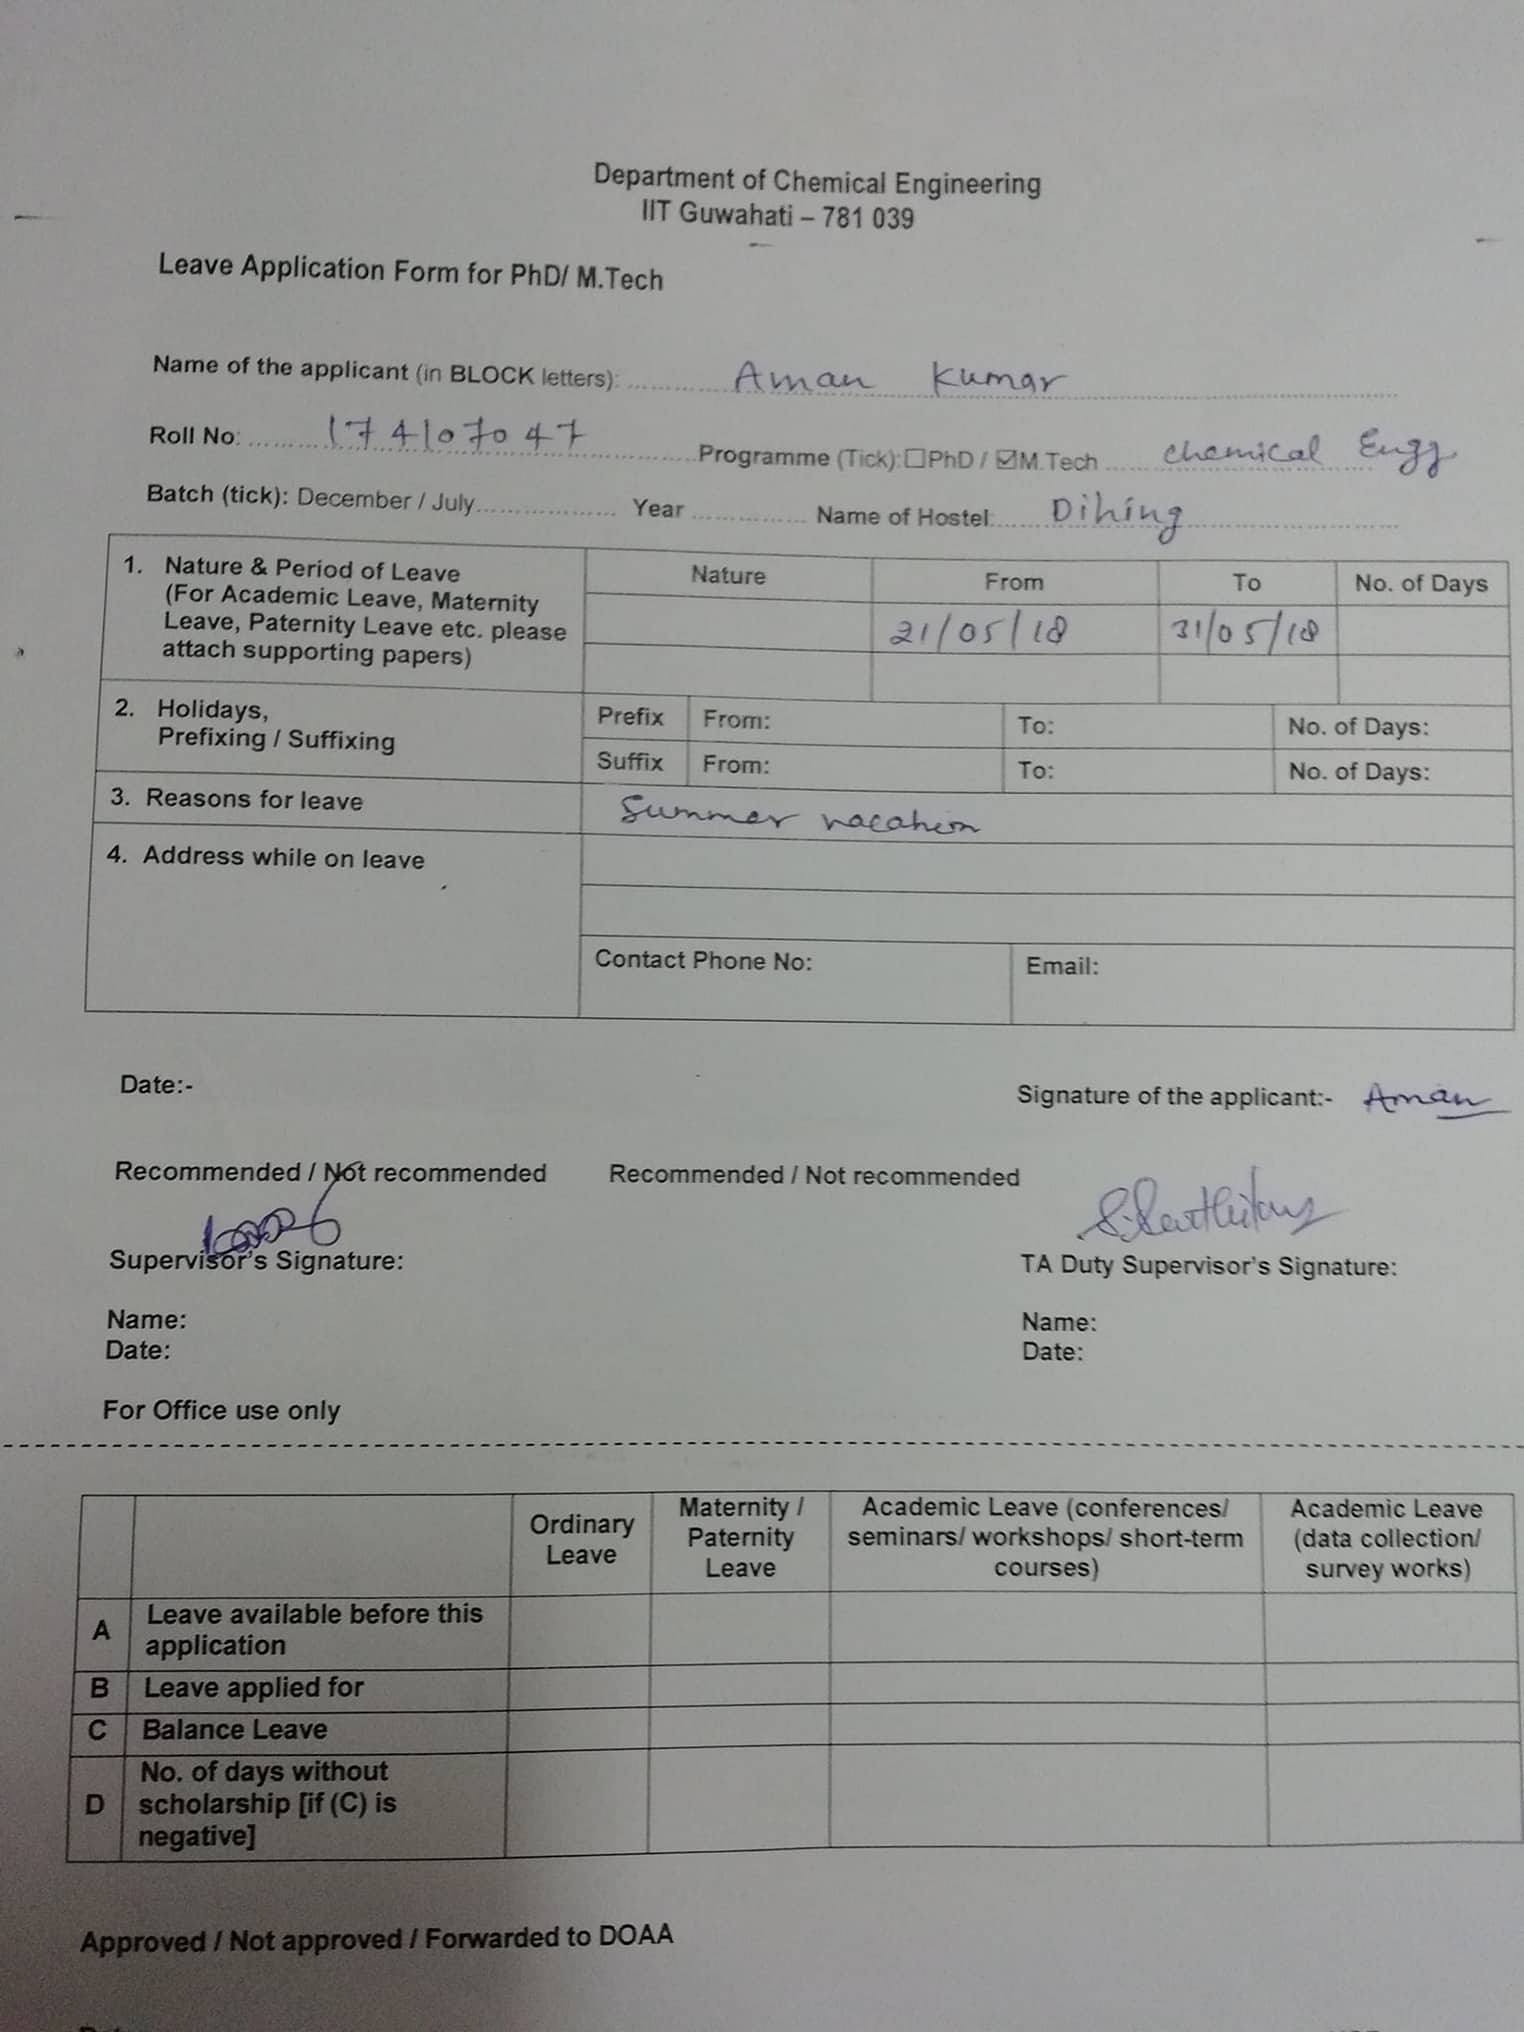 Department of Chemical Engineering
IIT Guwahati – 781 039
Leave Application Form for PhD/ M.Tech
Name of the applicant (in BLOCK letters): Aman Kumar
Roll No: 174107047 Programme (Tick): ☐PhD / ☑M.Tech chemical Engg
Batch (tick): December / July.................. Year .............. Name of Hostel: Dihing
1. Nature & Period of Leave
(For Academic Leave, Maternity
Leave, Paternity Leave etc. please
attach supporting papers)
Nature From To No. of Days
21/05/18 31/05/18
2. Holidays,
Prefixing / Suffixing
Prefix From: To: No. of Days:
Suffix From: To: No. of Days:
3. Reasons for leave Summer vacation
4. Address while on leave
Contact Phone No: Email:
Date:- Signature of the applicant:- Aman
Recommended / Not recommended Recommended / Not recommended
Supervisor's Signature: TA Duty Supervisor's Signature:
Name: Name:
Date: Date:
For Office use only
Ordinary Leave Maternity / Paternity Leave Academic Leave (conferences/ seminars/ workshops/ short-term courses) Academic Leave (data collection/ survey works)
A Leave available before this application
B Leave applied for
C Balance Leave
D No. of days without scholarship [if (C) is negative]
Approved / Not approved / Forwarded to DOAA